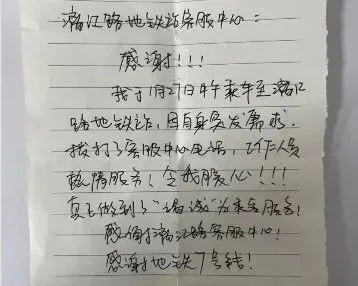 漓江路地铁站客服中心:
感谢!!!
我于1月27日中午乘车至漓江
路地铁站,因自身突发需求,
拨打了客服中心电话,工作人员
热情服务!令我暖心!!!
真正做到了"竭诚"为乘客服务!
感谢漓江路客服中心!
感谢地铁7号线!